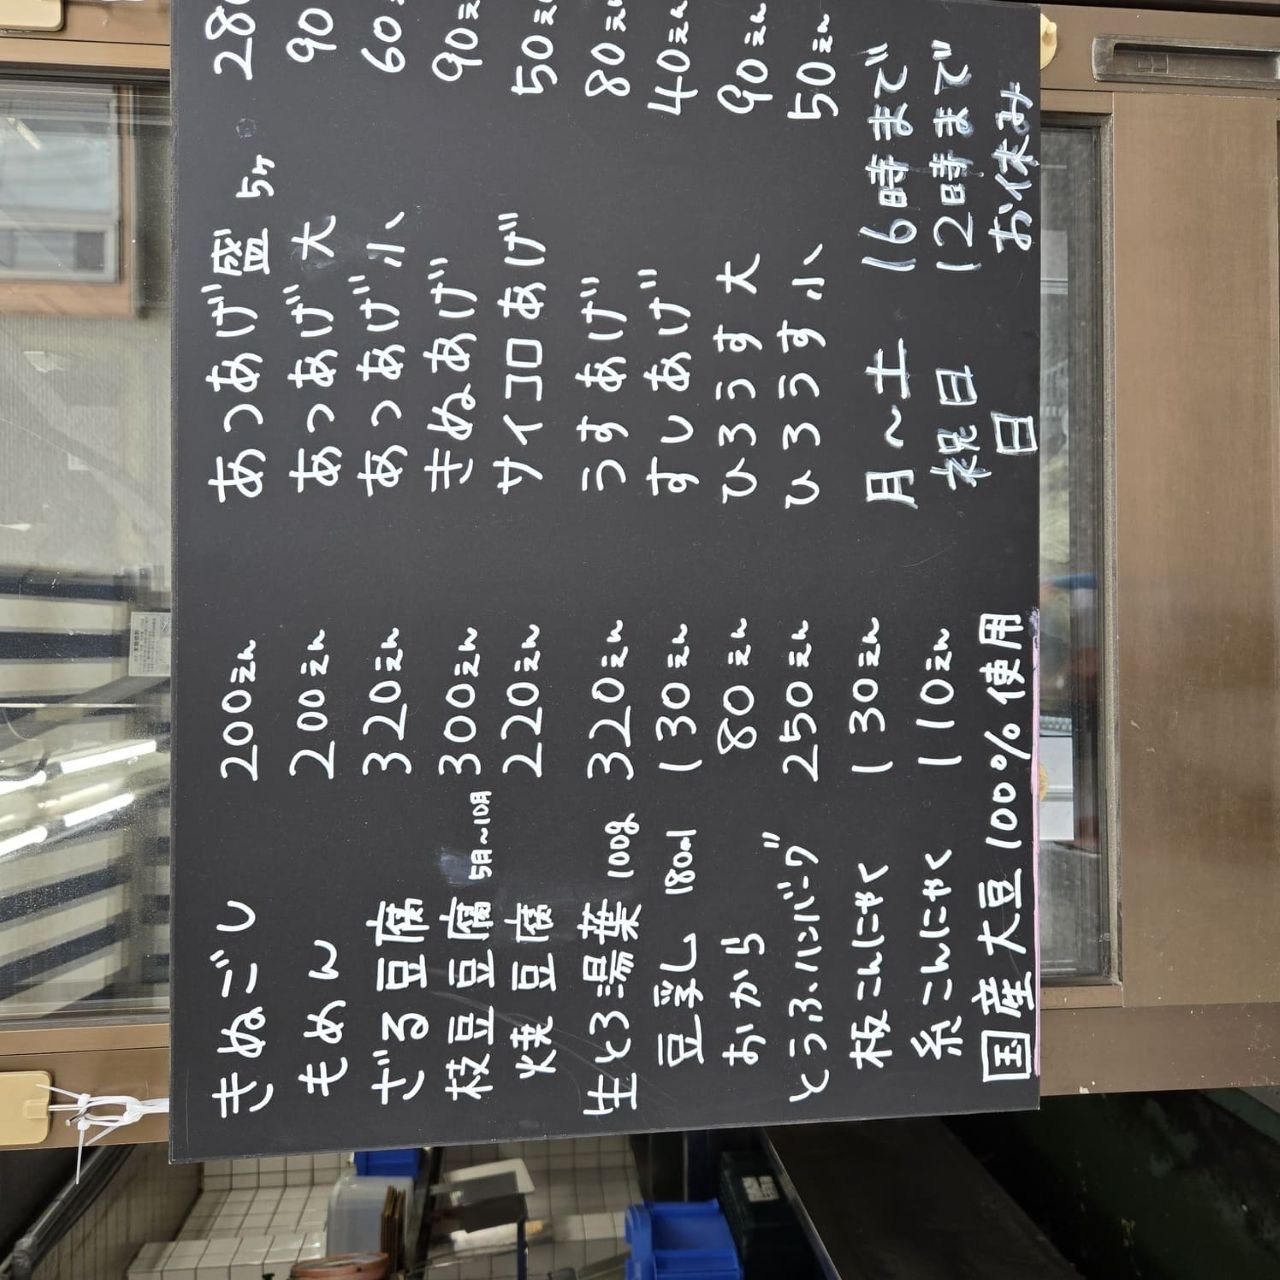 きぬごし 200えん
もめん 200えん
ざる豆腐 320えん
枝豆豆腐 5月～10月 300えん
焼豆腐 220えん
生とろ湯葉 100g 320えん
豆乳 180ml 130えん
おから 80えん
とうふハンバーグ 250えん
板こんにゃく 130えん
糸こんにゃく 110えん
国産大豆100%使用
あつあげ盛 5ヶ 280
あつあげ 大 90
あつあげ 小 60
きぬあげ 90え
サイコロあげ 50え
うすあげ 80えん
すしあげ 40えん
ひろうす 大 90えん
ひろうす 小 50えん
月～土 16時まで
祝日 12時まで
日 お休み